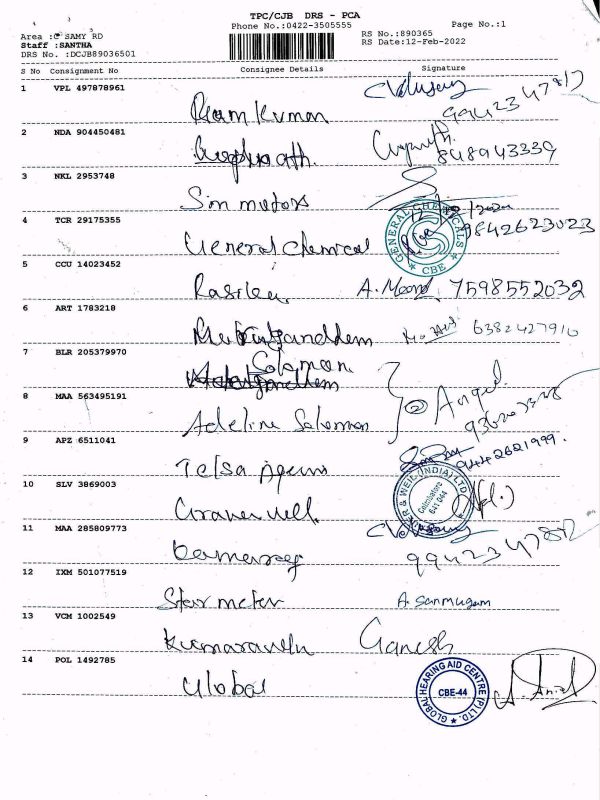 TPC/CJB DRS - PCA
Phone No.:0422-3505555
Page No.:1
Area :C SAMY RD
Staff :SANTHA
DRS No. :DCJB89036501
RS No.:890365
RS Date:12-Feb-2022
S No Consignment No Consignee Details Signature
1 VPL 497878961 Ram Kumar 9942347817
2 NDA 904450481 Gopinath. 848943339
3 NKL 2953748 Sim motors
4 TCR 29175355 General chemical 9842623023
GENERAL CHEMICALS
CBE
5 CCU 14023452 A. 7598552032
6 ART 1783218 6382427910
7 BLR 205379970 Soloman
8 MAA 563495191 Adeline Soloman
9 APZ 6511041 9442621999.
10 SLV 3869003
& WEIL (INDIA) LTD
Coimbatore
641 044
11 MAA 285809773
12 IXM 501077519 Star meter A. Sanmugam
13 VCM 1002549 Ganesh
14 POL 1492785 Global
GLOBAL HEARING AID CENTRE (P) LTD.
CBE-44